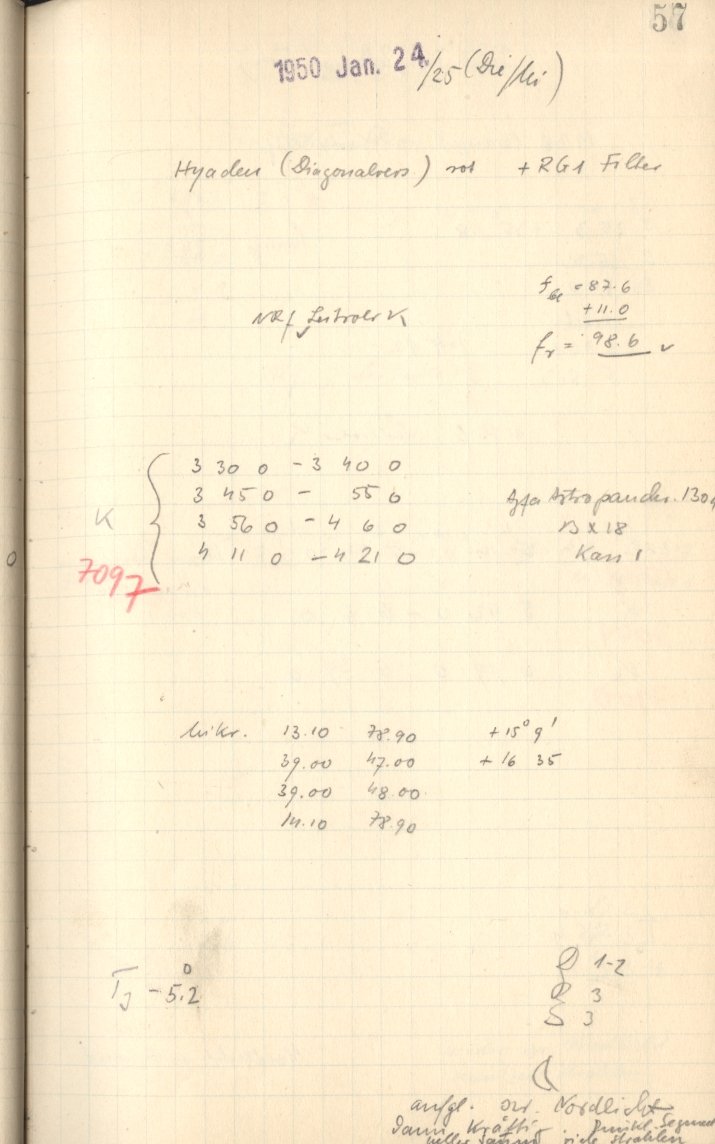 57
1950 Jan. 24./25 (Die/Mi)
Hyaden (Diagonalvers) rot + RG1 Filter
= 87.6
+11.0
fr = 98.6
3 30 0 - 3 40 0
3 45 0 - 55 0
K
3 56 0 - 4 6 0
4 11 0 - 4 21 0
7097
Agfa Astropanchr.
Kass 1
Mikr. 13.10 78.90 +15° 9'
39.00 47.00 +16 35
39.00 48.00
14.10 78.90
1-2
TJ - 5.2
3
3
aufgl. Nordlicht
Dann Kräftig. Segment
heller Saum Strahlen